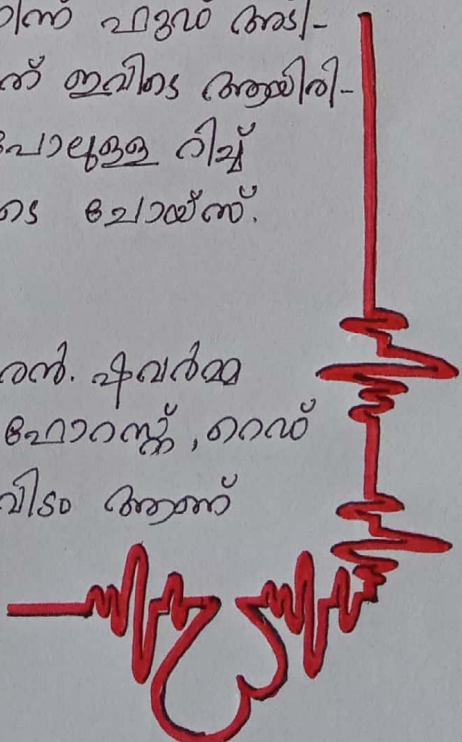 ന്ന് ഫുഡ് അടി-
ത് ഇവിടെ ആയിരി-
പോലുള്ള റിച്ച്
ടെ ചോയ്സ്.
രൻ. ഷവർമ്മ
ഫോറസ്റ്റ്, റെഡ്
വിടം ആണ്